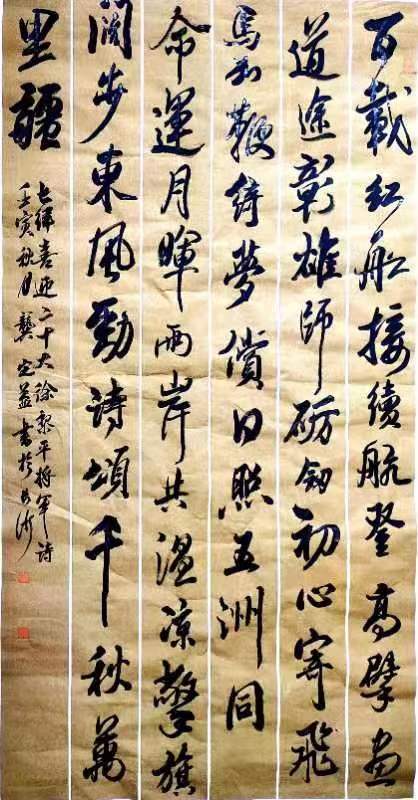 百載紅船接續航登高擘畫
道途彰雄師礪劍初心寄飛
馬加鞭綺夢償日照五洲同
命運月暉兩岸共溫涼擎旗
闊步東風勁詩頌千秋萬
里疆
七律喜迎二十大徐黎平將軍詩
壬寅秋月龔定益書於長沙